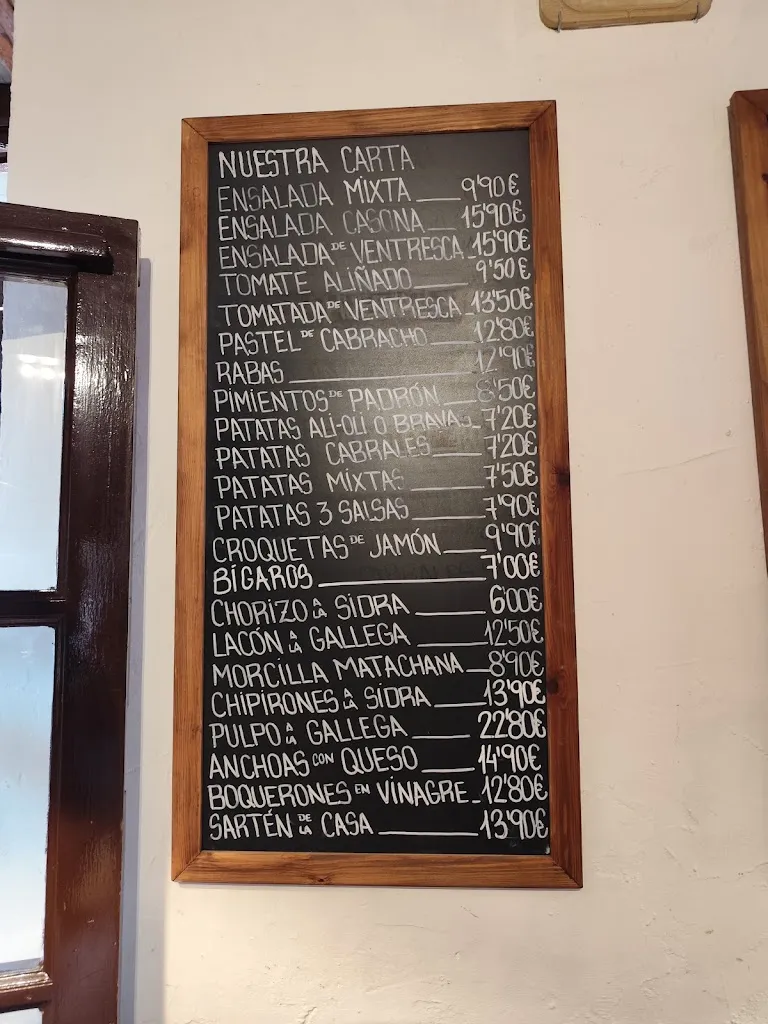 NUESTRA CARTA
ENSALADA MIXTA 9'90€
ENSALADA CASONA 15'90€
ENSALADA DE VENTRESCA 15'90€
TOMATE ALIÑADO 9'50€
TOMATADA DE VENTRESCA 13'50€
PASTEL DE CABRACHO 12'80€
RABAS 12'90€
PIMIENTOS DE PADRÓN 8'50€
PATATAS ALI-OLI O BRAVAS 7'20€
PATATAS CABRALES 7'20€
PATATAS MIXTAS 7'50€
PATATAS 3 SALSAS 7'90€
CROQUETAS DE JAMÓN 9'90€
BÍGAROS 7'00€
CHORIZO A LA SIDRA 6'00€
LACÓN A LA GALLEGA 12'50€
MORCILLA MATACHANA 8'90€
CHIPIRONES A LA SIDRA 13'90€
PULPO A LA GALLEGA 22'80€
ANCHOAS CON QUESO 14'90€
BOQUERONES EN VINAGRE 12'80€
SARTÉN DE LA CASA 13'90€